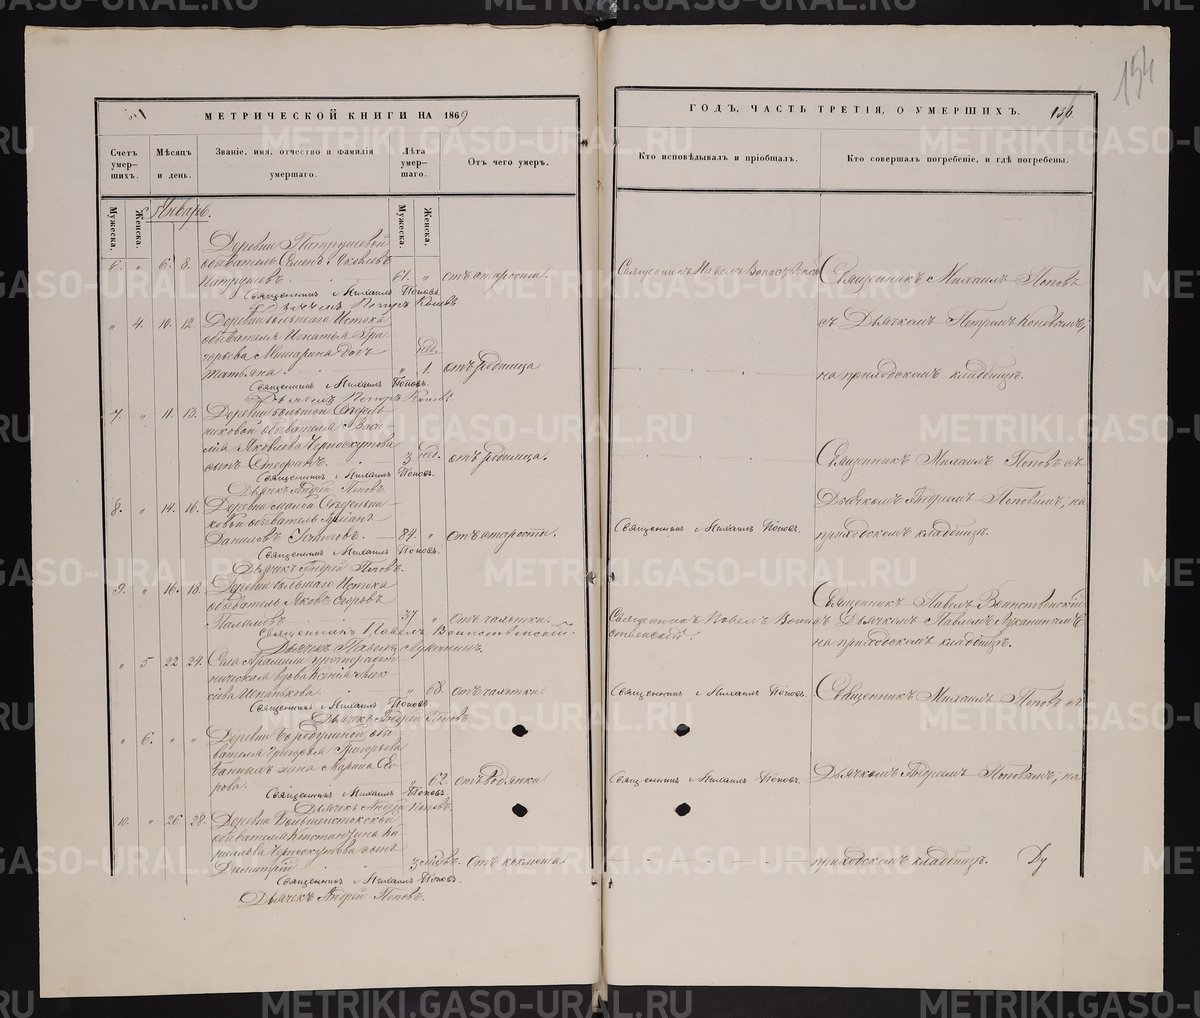 154
МЕТРИЧЕСКОЙ КНИГИ НА 1869
ГОДЪ, ЧАСТЬ ТРЕТІЯ, О УМЕРШИХЪ.
Счетъ умер-шихъ.
Мѣсяцъ и день.
Званіе, имя, отчество и фамилія умершаго.
Лѣта умер-шаго.
Отъ чего умеръ.
Кто исповѣдывалъ и пріобщалъ.
Кто совершалъ погребеніе, и гдѣ погребены.
Мужеска.
Женска.
Мужеска.
Женска.
Январь.
Деревни Патрушевой
6. " 6. 8. обыватель Семенъ Яковлевъ
Патрушевъ. 61. " отъ старости.
Священникъ Михаилъ Поповъ
Дьячекъ Петръ Коневъ
" 4. 10. 12. Деревни Большаго Истока
обывателя Игнатья Гри-
горьева дочь нед.
Татьяна. " 1. отъ родимца.
Священникъ Михаилъ Поповъ.
Дьячекъ Петръ Коневъ.
7. " 11. 13. Деревни Большой Седель-
никовой обывателя Васи-
лія Яковлева Черноскутова
сынъ Стефанъ. 3 нед. отъ родимца.
Священникъ Михаилъ Поповъ.
Дьячекъ Андрей Поповъ.
8. " 14. 16. Деревни Малой Седельни-
ковой обыватель
Даниловъ 84. " отъ старости.
Священникъ Михаилъ Поповъ.
Дьячекъ Андрей Поповъ.
9. " 16. 18. Деревни Большаго Истока
обыватель Яковъ Егоровъ
37 " отъ чахотки.
Священникъ Павелъ Воинственскій.
Дьячекъ Павелъ Луканинъ.
" 5 22 24. Села Арамили
вдова Ксенія Алек-
" 68. отъ чахотки.
Священникъ Михаилъ Поповъ.
Дьячекъ Андрей Поповъ.
" 6. " " Деревни обы-
вателя Григорія Григорьева
Банныхъ жена Марина Его-
рова. " 62. отъ водянки.
Священникъ Михаилъ Поповъ
Дьячекъ Андрей Поповъ.
10. " 26. 28. Деревни Большеистокской
обывателя Константина Ки-
риллова Черноскутова сынъ
Димитрій 3 отъ коклюша.
Священникъ Михаилъ Поповъ.
Дьячекъ Андрей Поповъ.
Священникъ Павелъ
Священникъ Михаилъ Поповъ
съ Дьячкомъ Петромъ Коневымъ,
на приходскомъ кладбищѣ.
Священникъ Михаилъ Поповъ съ
Дьячкомъ Андреемъ Поповымъ, на
Священникъ Михаилъ Поповъ.
приходскомъ кладбищѣ.
Священникъ Павелъ Воин-
ственскій.
Священникъ Павелъ Воинственскій
съ Дьячкомъ Павломъ Луканинымъ
на приходскомъ кладбищѣ.
Священникъ Михаилъ Поповъ.
Священникъ Михаилъ Поповъ съ
Священникъ Михаилъ Поповъ.
Дьячкомъ Андреемъ Поповымъ, на
приходскомъ кладбищѣ. Ду
METRIKI.GASO-URAL.RU